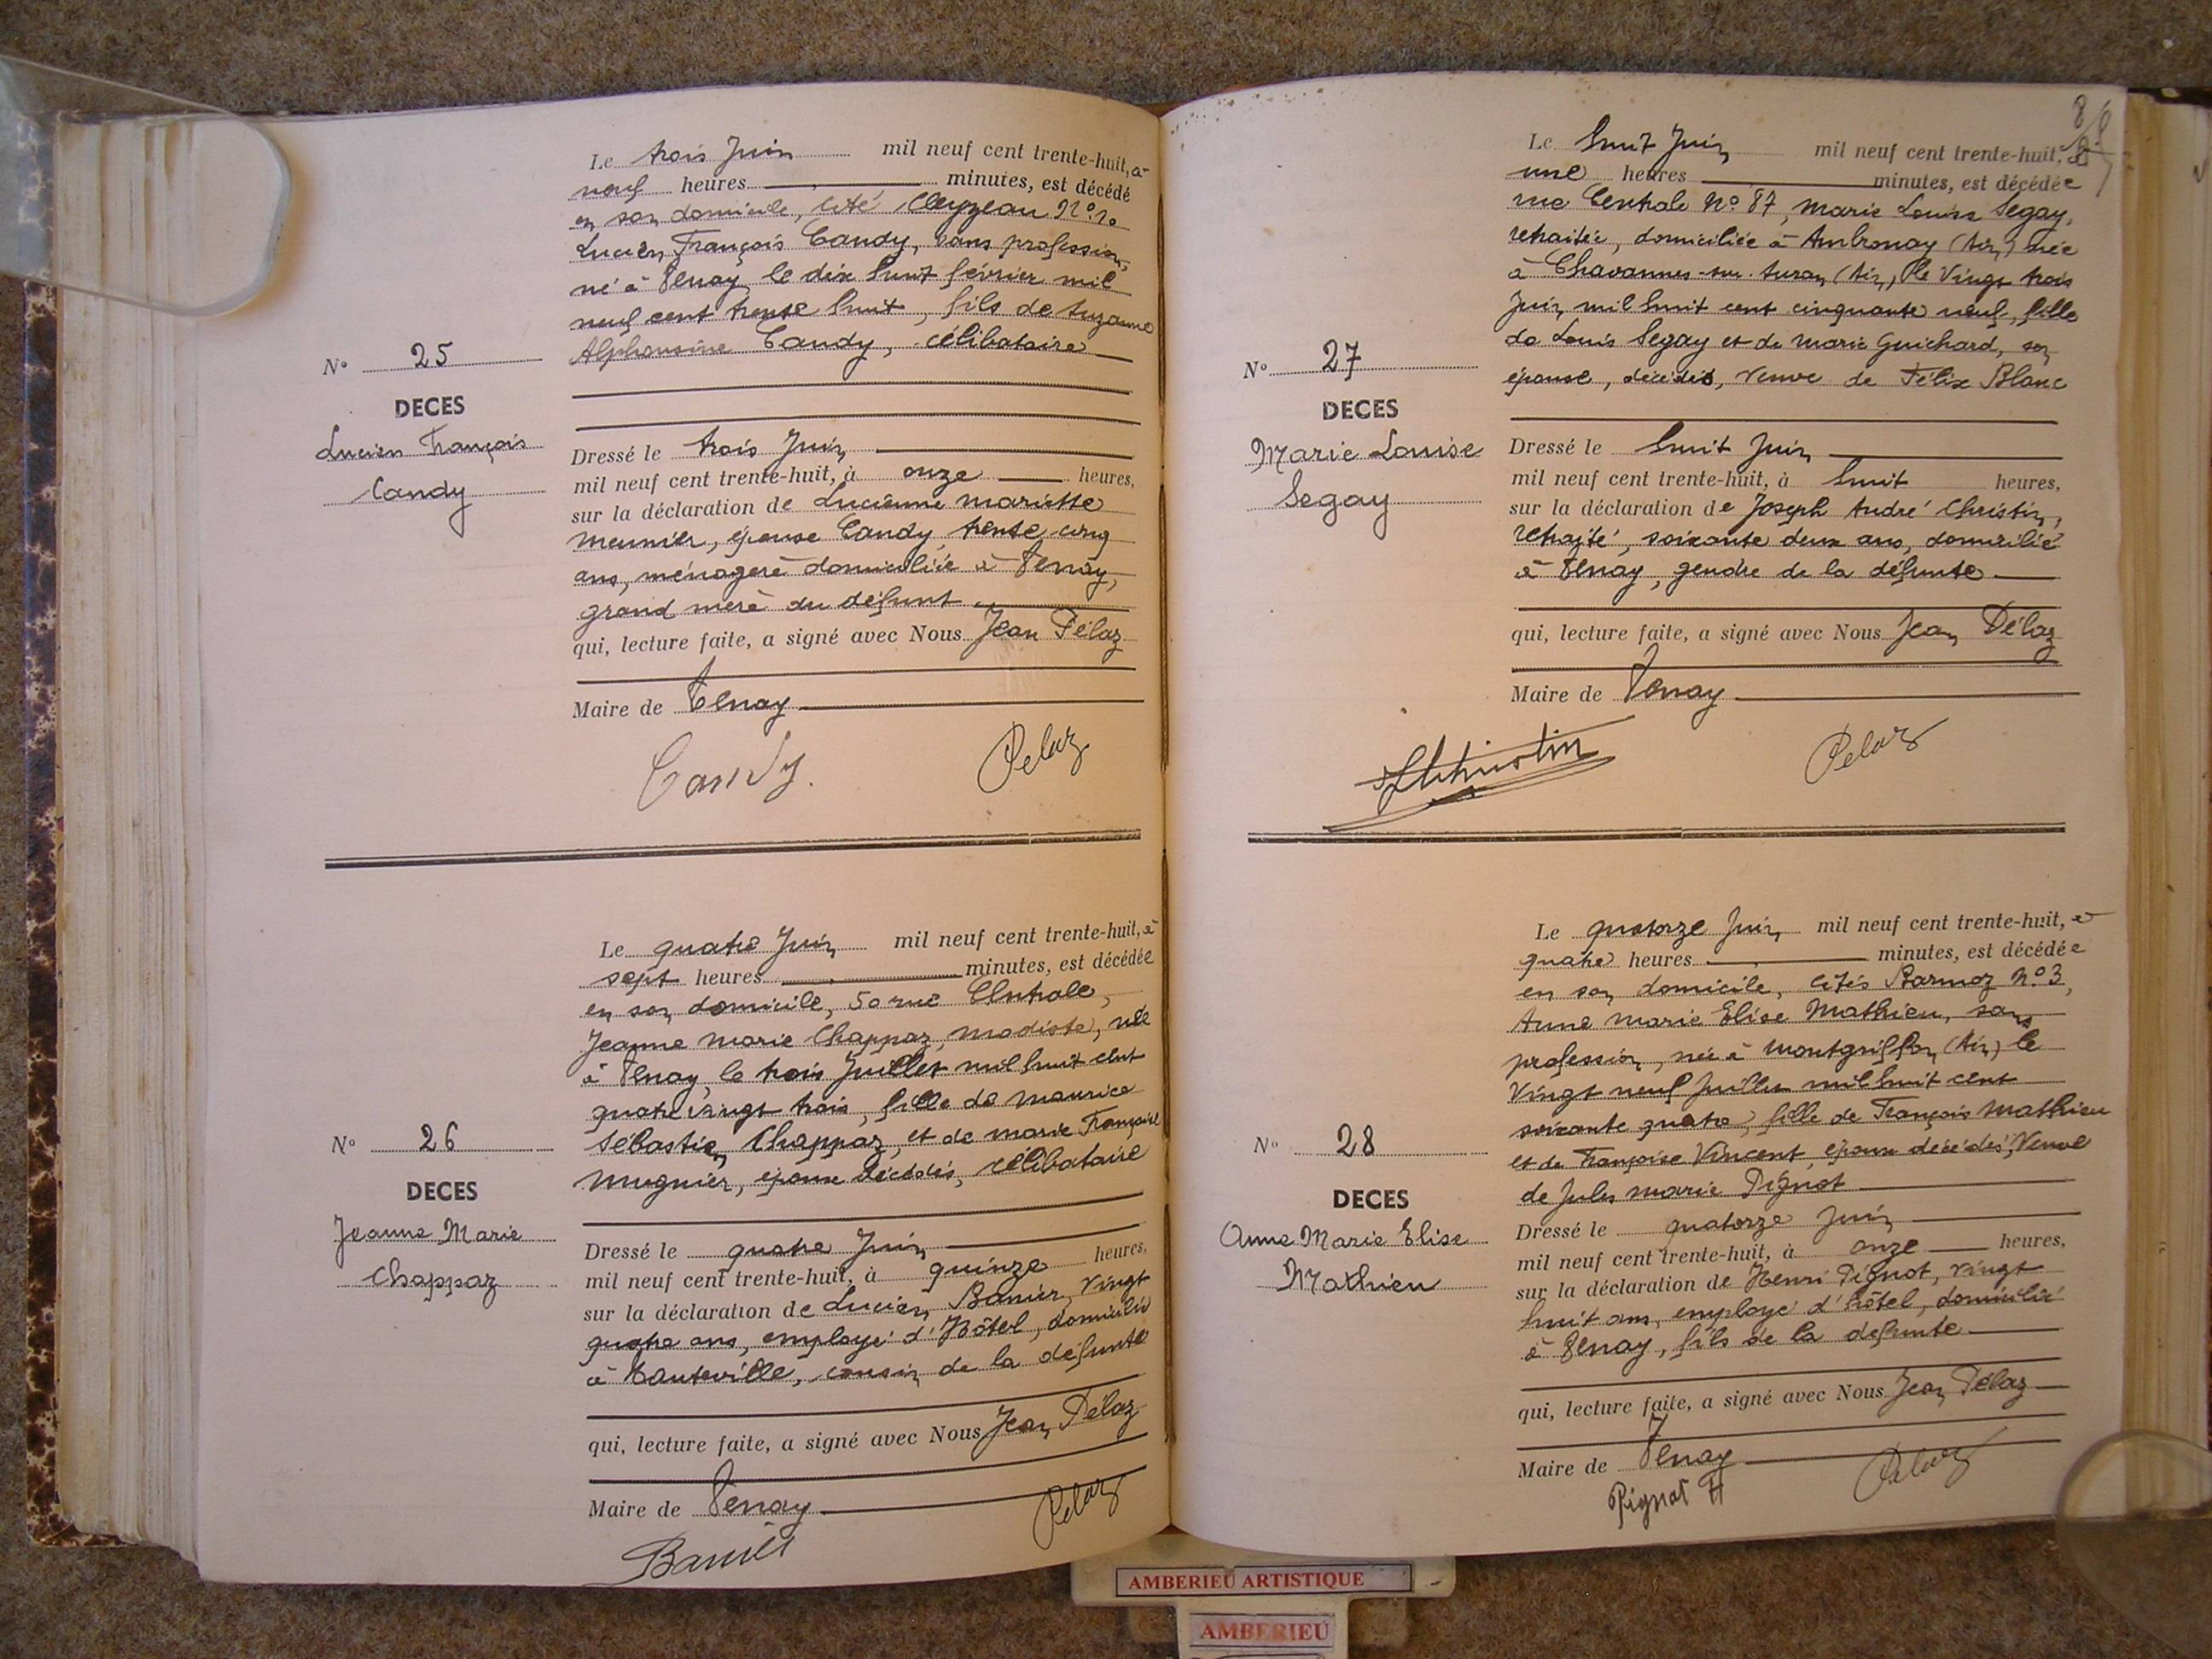 Le trois Juin mil neuf cent trente-huit, à
neuf heures minutes, est décédé
en son domicile, cité Cleyzeau N°
Lucien François Candy, sans profession,
né à Tenay le dix huit février mil
neuf cent trente huit, fils de Suzanne
Alphonsine Candy, célibataire
N° 25
DECES
Lucien François
Candy
Dressé le trois Juin
mil neuf cent trente-huit, à onze heures,
sur la déclaration de Lucienne Mariette
Meunier, épouse Candy, trente cinq
ans, ménagère domiciliée à Tenay,
grand mère du défunt
qui, lecture faite, a signé avec Nous Jean Pélaz
Maire de Tenay
Candy. Pelaz
Le quatre Juin mil neuf cent trente-huit, à
sept heures minutes, est décédée
en son domicile, 50 rue Centrale,
Jeanne Marie Chappaz, modiste, née
à Tenay, le trois Juillet mil huit cent
quatre vingt trois, fille de Maurice
Sébastien Chappaz, et de Marie Françoise
Mugnier, époux décédés, célibataire
N° 26
DECES
Jeanne Marie
Chappaz
Dressé le quatre Juin
mil neuf cent trente-huit, à quinze heures,
sur la déclaration de Lucien Banier, vingt
quatre ans, employé d'Hôtel, domicilié
à Hauteville, cousin de la défunte
qui, lecture faite, a signé avec Nous Jean Pélaz
Maire de Tenay
Banier Pelaz
Le huit Juin mil neuf cent trente-huit, à
une heures minutes, est décédée
rue Centrale N° 87, Marie Louise Segay,
retraitée, domiciliée à Ambronay (Ain) née
à Chavannes-sur-Suran (Ain), le Vingt trois
Juin mil huit cent cinquante neuf, fille
de Louis Segay et de Marie Guichard, son
épouse, décédés, veuve de Félix Blanc
N° 27
DECES
Marie Louise
Segay
Dressé le huit Juin
mil neuf cent trente-huit, à huit heures,
sur la déclaration de Joseph André Christin,
retraité, soixante deux ans, domicilié
à Tenay, gendre de la défunte
qui, lecture faite, a signé avec Nous Jean Pélaz
Maire de Tenay
Christin Pelaz
Le quatorze Juin mil neuf cent trente-huit, à
quatre heures minutes, est décédée
en son domicile, cités Barmoz N° 3,
Anne Marie Elise Mathieu, sans
profession, née à Montgriffon (Ain) le
Vingt neuf Juillet mil huit cent
soixante quatre, fille de François Mathieu
et de Françoise Vincent, époux décédés, Veuve
de Jules Marie Pignot
N° 28
DECES
Anne Marie Elise
Mathieu
Dressé le quatorze Juin
mil neuf cent trente-huit, à onze heures,
sur la déclaration de Henri Pignot, vingt
huit ans, employé d'hôtel, domicilié
à Tenay, fils de la défunte
qui, lecture faite, a signé avec Nous Jean Pélaz
Maire de Tenay
Pignot H Pelaz
AMBERIEU ARTISTIQUE
AMBERIEU